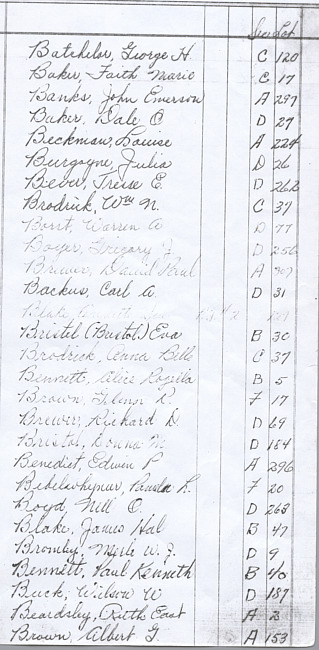 Sec Lot
Batchelor, George H. C 120
Baker, Faith Marie C 17
Banks, John Emerson A 297
Baker, Dale O D 27
Beckman, Louise A 224
Burgoyne, Julia D 26
Bever, Treise E. D 262
Brodrick, Wm N. C 37
Borst, Warren A D 77
Boyer, Gregory J. D 256
Brewer, David Paul A 307
Backus, Carl A. D 31
Blake,
Bristel (Bristol) Eva B 30
Brodrick, Anna Belle C 37
Bennett, Alice Rozilla B 5
Brown, Glenn R. F 17
Brewer, Rickard D. D 69
Bristol, Donna M. D 184
Benedict, Edwin P A 296
Bebelwhymer, Pamela R. F 20
Boyd, Nill O. D 268
Blake, James Hal B 47
Bromley, Merle W. J. D 9
Bennett, Paul Kenneth B 40
Buck, Wilson W D 187
Beardsley, Ruth East A 2
Brown, Albert G. A 153